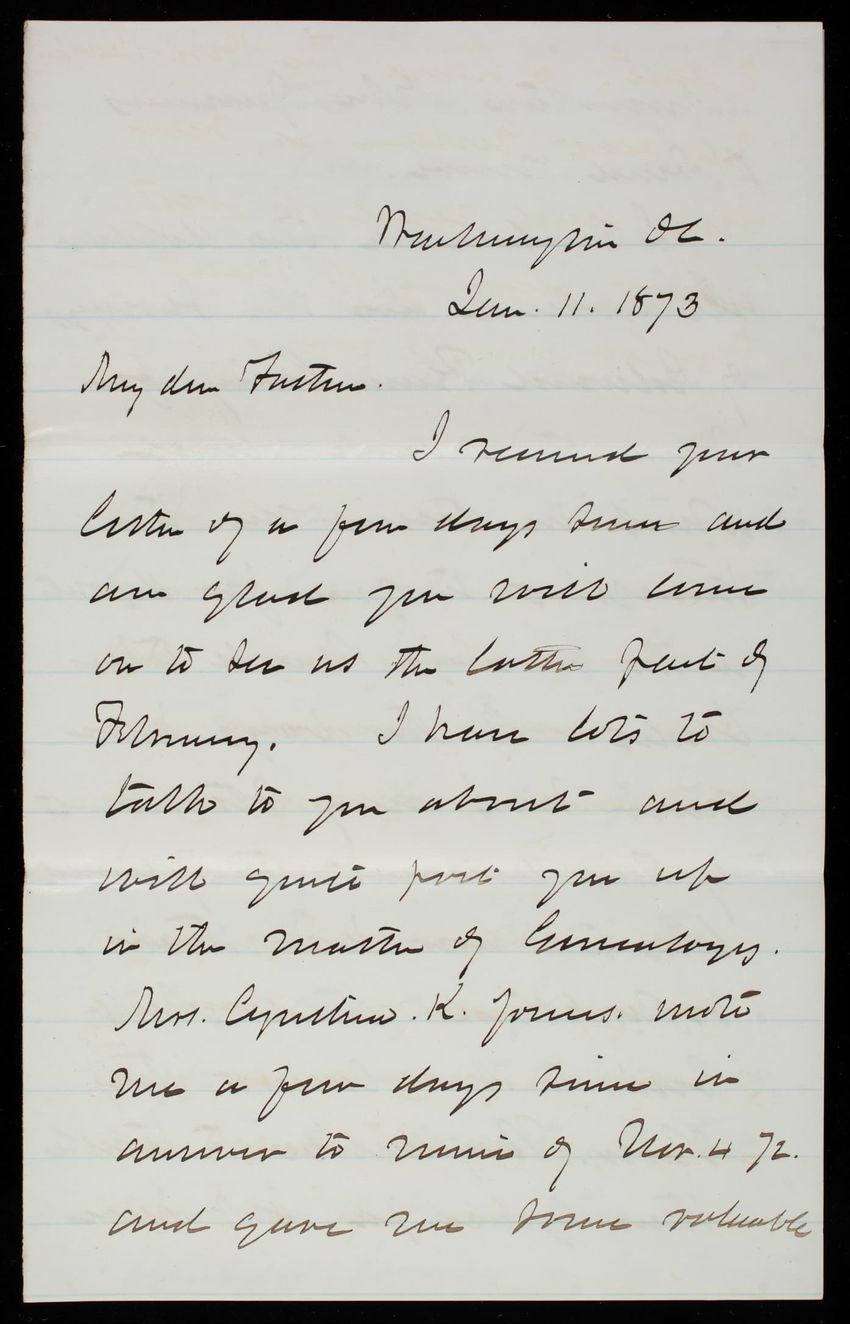 Washington DC.
Jan. 11. 1873
My dear Father.
I received your
letter of a few days since and
am glad you will come
on to see us the latter part of
February. I have lots to
talk to you about and
will quite post you up
in the matter of Genealogy.
Mrs. Cynthia. K. Jones. wrote
me a few days since in
answer to mine of Nov. 4 72.
and gave me some valuable